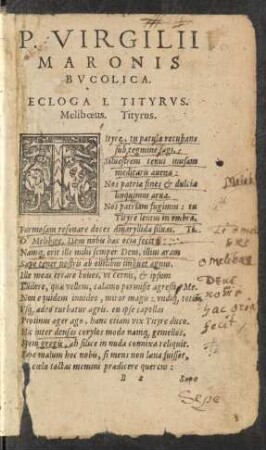 P. VIRGILII
MARONIS
BVCOLICA.
ECLOGA I. TITYRVS.
Meliboeus. Tityrus.
Ityre, tu patulæ recubans
sub tegmine fagi,
Siluestrem tenui musam
meditaris auena:
Nos patriæ fines & dulcia
linquimus arua.
Nos patriam fugimus: tu
Tityre lentus in vmbra,
Formosam resonare doces Amaryllida siluas. Ti.
O' Meliboee, Deus nobis hæc ocia fecit:
Namq; erit ille mihi semper Deus, illius aram
Sæpe tener nostris ab ouilibus imbuet agnus.
Ille meas errare boues, vt cernis, & ipsum
Ludere, quæ vellem, calamo permisit agresti. Me.
Non equidem inuideo, miror magis: vndiq; totis
Vsq; adeo turbatur agris. en ipse capellas
Protinus æger ago, hanc etiam vix Tityre duco.
Hic inter densas corylos modo namq; gemellos,
Spem gregis, ah silice in nuda connixa reliquit.
Sæpe malum hoc nobis, si mens non læua fuisset,
De cœlo tactas memini prædicere quercus:
Sæpe
o melibee
Deus
fecit
Sepe